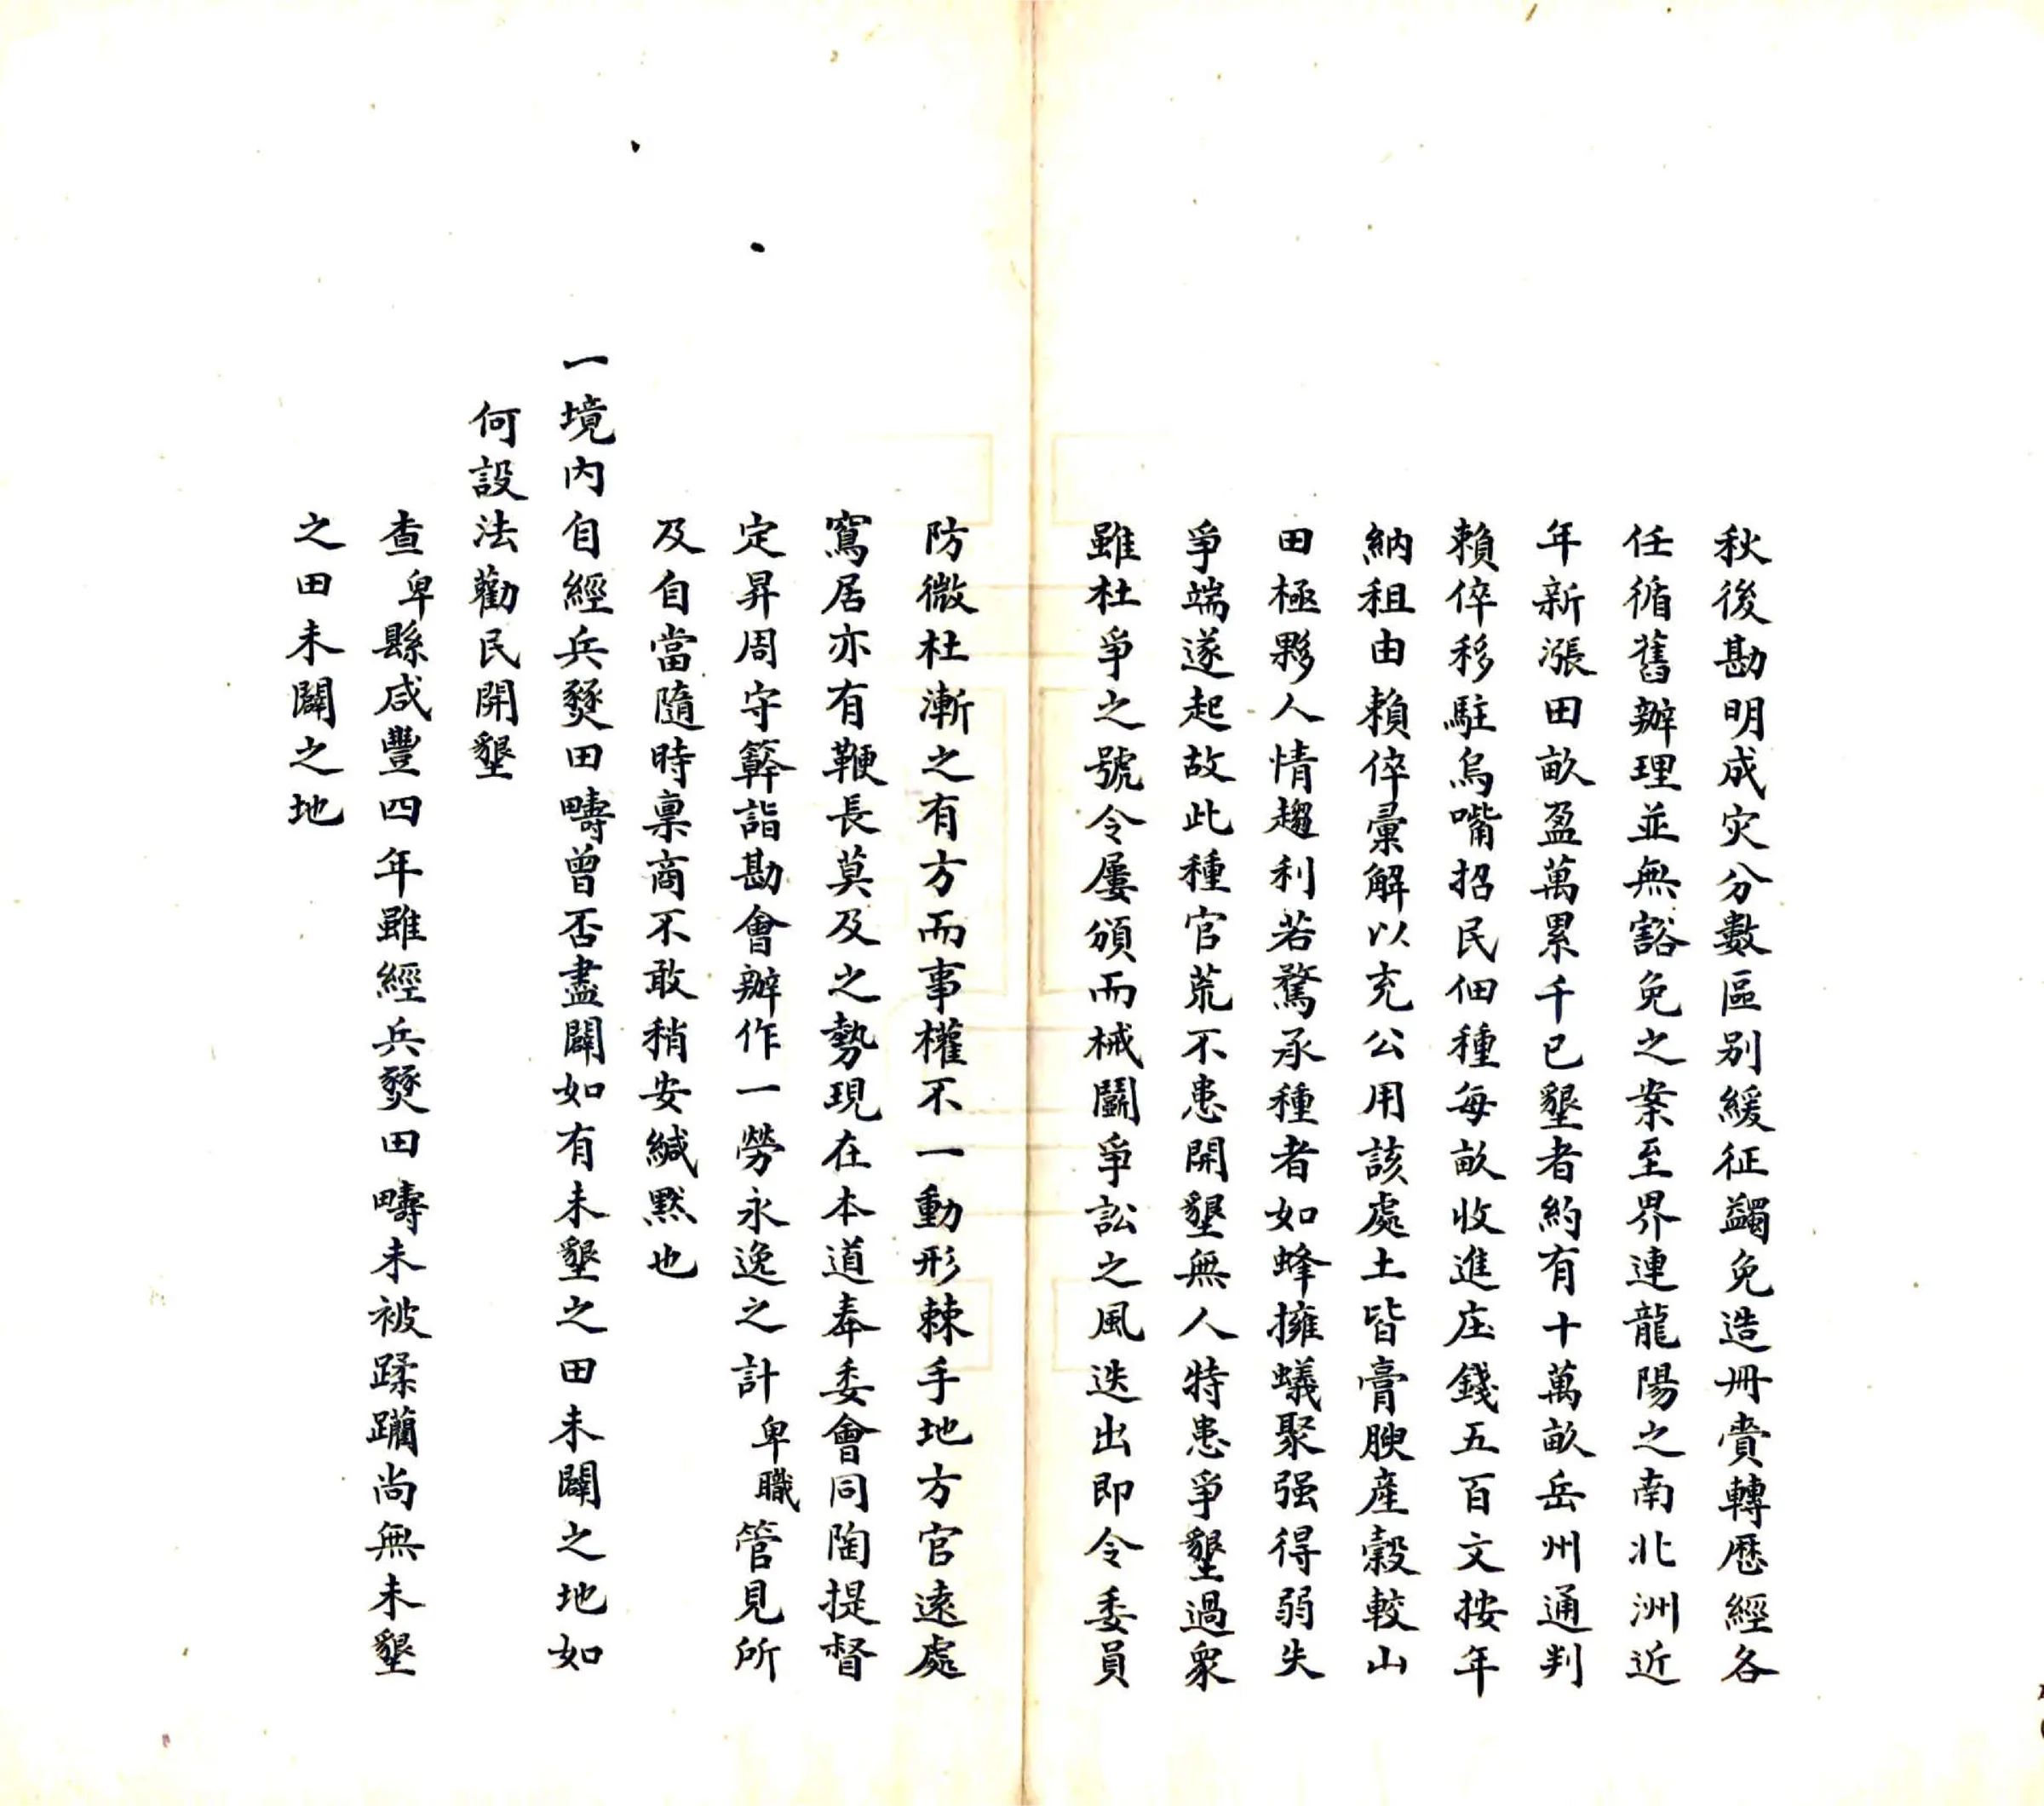 秋後勘明成灾分數區别緩征蠲免造冊賫轉歷經各
任循舊辦理並無豁免之案至界連龍陽之南北洲近
年新漲田畝盈萬累千已墾者約有十萬畝岳州通判
賴倅移駐烏嘴招民佃種每畝收進庄錢五百文按年
納租由賴倅彙解以充公用該處土皆膏腴産穀較山
田極夥人情趨利若鶩承種者如蜂擁蟻聚强得弱失
爭端遂起故此種官荒不患開墾無人特患爭墾過衆
雖杜爭之號令屢頒而械鬭爭訟之風迭出即令委員
防微杜漸之有方而事權不一動形棘手地方官遠處
窵居亦有鞭長莫及之勢現在本道奉委會同陶提督
定昇周守簳詣勘會辦作一勞永逸之計卑職管見所
及自當隨時稟商不敢稍安緘默也
一境内自經兵燹田疇曾否盡闢如有未墾之田未闢之地如
何設法勸民開墾
查卑縣咸豐四年雖經兵燹田疇未被蹂躪尚無未墾
之田未闢之地